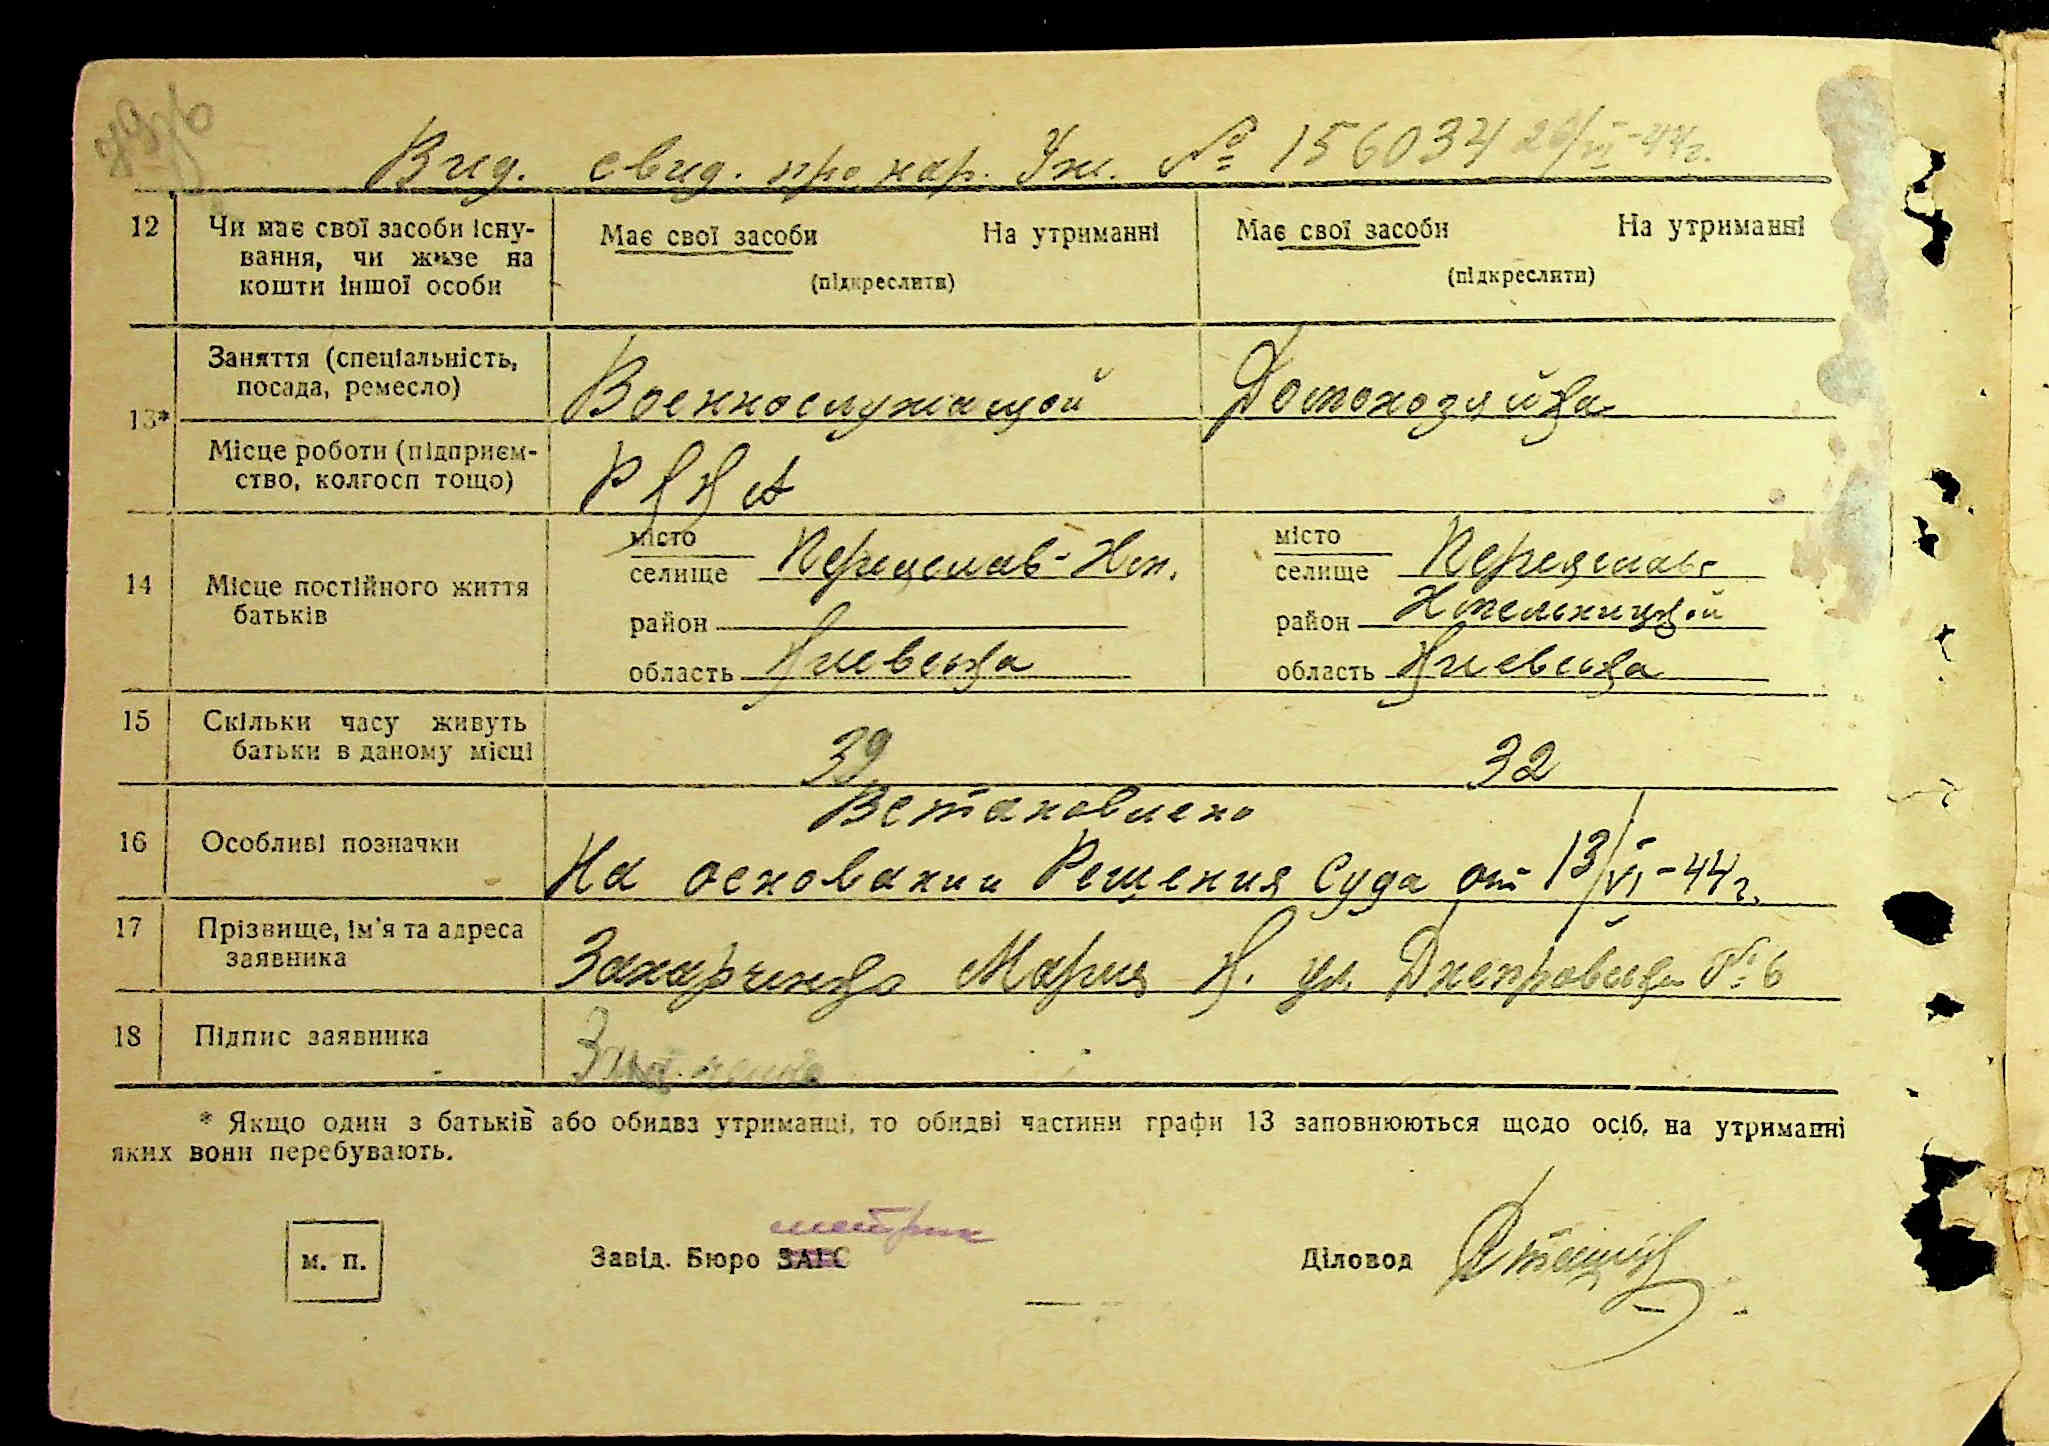 Вид. свид. про нар. Уж. № 156034 20/VI-44г.
12 Чи має свої засоби існування, чи живе на кошти іншої особи
Має свої засоби На утриманні
(підкреслити)
Має свої засоби На утриманні
(підкреслити)
13*
Заняття (спеціальність,
посада, ремесло)
Военнослужащой
Домохозяйка
Місце роботи (підприєм-
ство, колгосп тощо)
РККА
14 Місце постійного життя
батьків
місто
селище Переяслав-Хм.
район
область Киевська
місто
селище Переяслав-
район Хмельницкой
область Киевська
15 Скільки часу живуть
батьки в даному місці
39
32
Встановлено
16 Особливі позначки
На основании Решения Суда от 13/VI-44г.
17 Прізвище, ім'я та адреса
заявника
Захарченко Мария К. ул. Днепровська № 6
18 Підпис заявника
* Якщо один з батьків або обидва утриманці, то обидві частини графи 13 заповнюються щодо осіб, на утриманні
яких вони перебувають.
метрик
м. п.
Завід. Бюро ЗАГС
Діловод